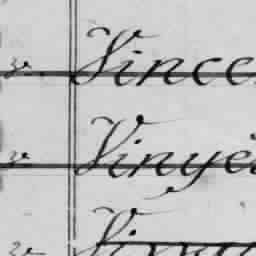 v. Vince
v. Vinye
v.